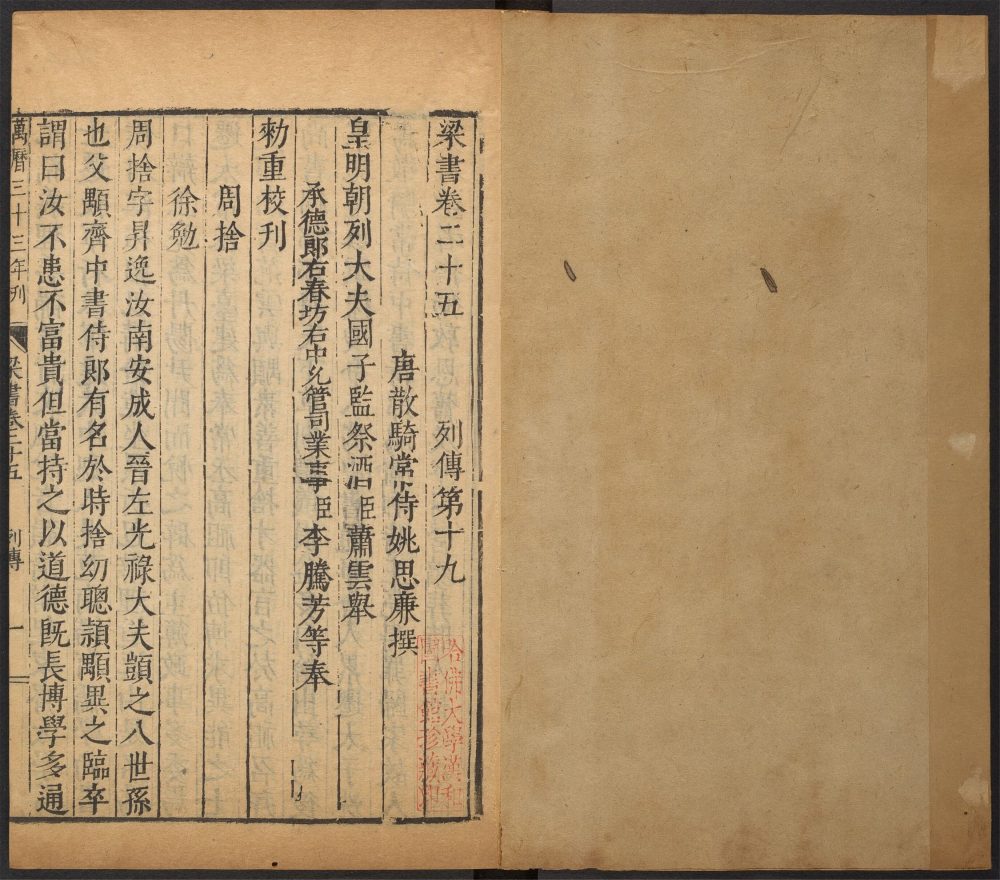 梁書卷二十五　列傳第十九
唐散騎常侍姚思廉撰
皇明朝列大夫國子監祭酒臣蕭雲舉
承德郎右春坊右中允管司業事臣李騰芳等奉
勑重校刊
周捨
徐勉
周捨字昇逸汝南安成人晉左光祿大夫顗之八世孫
也父顒齊中書侍郎有名於時捨幼聰穎顒異之臨卒
謂曰汝不患不富貴但當持之以道德既長博學多通
萬曆三十三年刋　梁書卷二十五　列傳　一
哈佛大學漢和
圖書館珍藏印